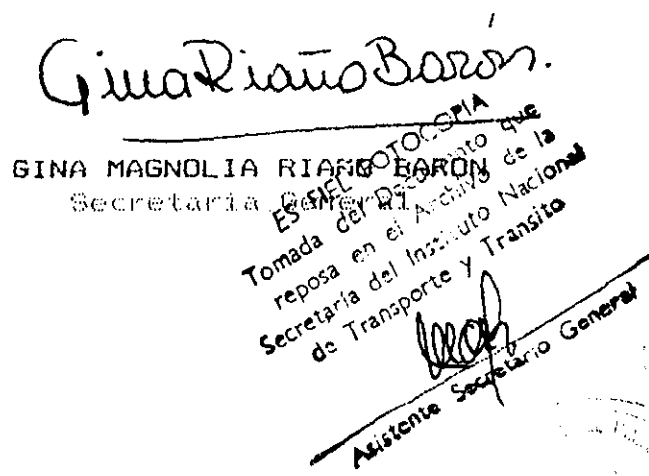 Gina Riaño Barón.
GINA MAGNOLIA RIAÑO BARON
Secretaria General
ES FIEL FOTOCOPIA
Tomada del Documento que
reposa en el Archivo de la
Secretaría del Instituto Nacional
de Transporte y Transito
Asistente Secretario General